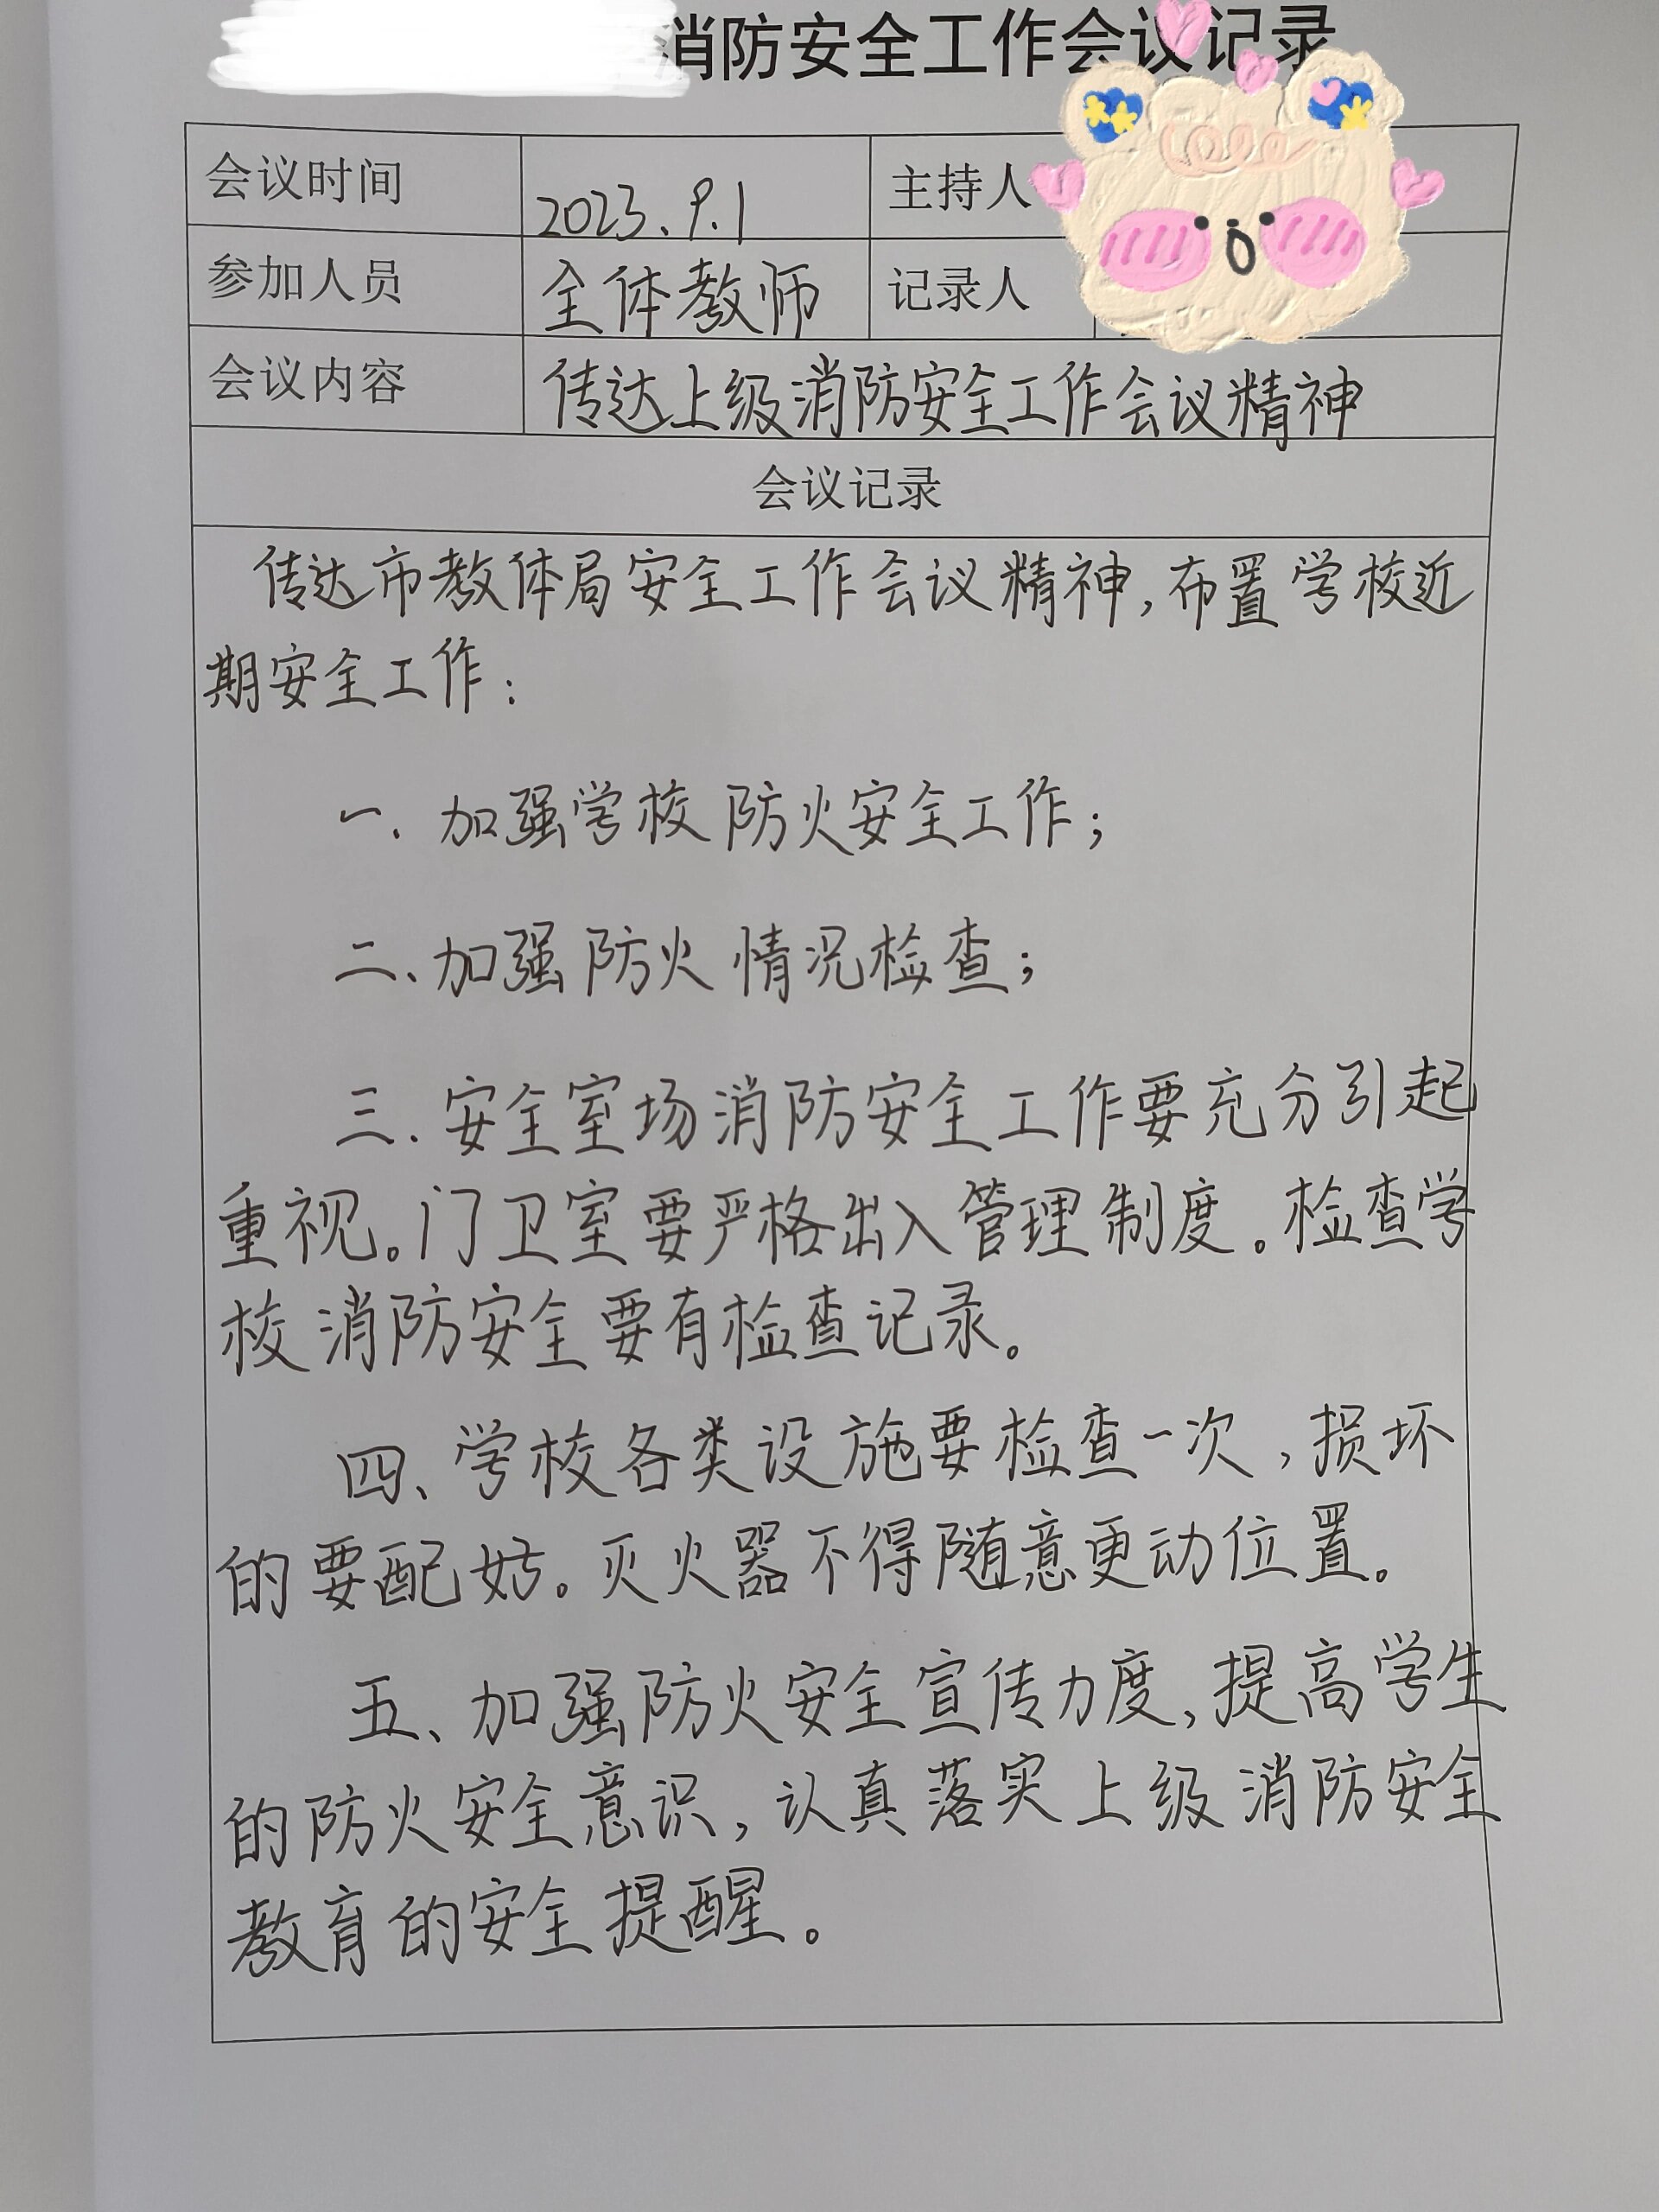 消防安全工作会议记录
会议时间 2023.9.1 主持人
参加人员 全体教师 记录人
会议内容 传达上级消防安全工作会议精神
会议记录
传达市教体局安全工作会议精神,布置学校近
期安全工作:
一.加强学校防火安全工作;
二、加强防火情况检查;
三.安全室场消防安全工作要充分引起
重视。门卫室要严格出入管理制度。检查学
校消防安全要有检查记录。
四、学校各类设施要检查一次,损坏
的要配好。灭火器不得随意更动位置。
五、加强防火安全宣传力度,提高学生
的防火安全意识,认真落实上级消防安全
教育的安全提醒。